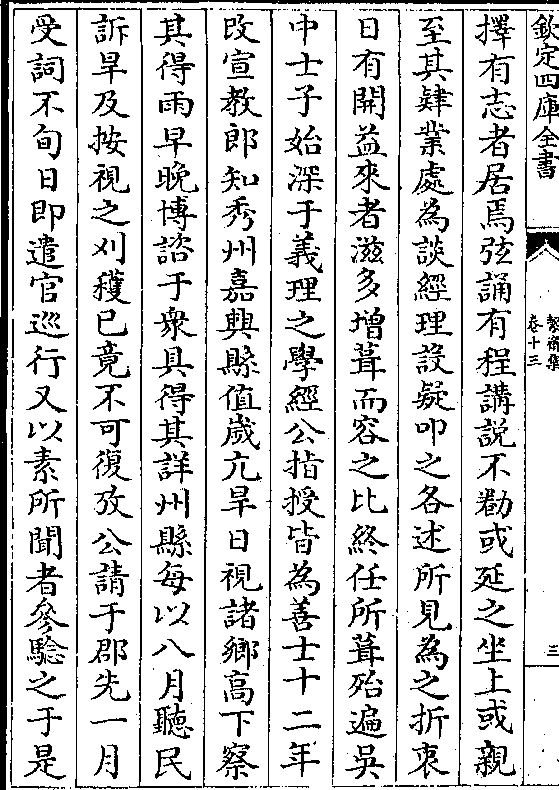 欽定四庫全書
絜齋集
卷十三
三
擇有志者居焉弦誦有程講説不勌或延之坐上或親
至其肄業處為談經理設疑叩之各述所見為之折衷
日有開益來者滋多增葺而容之比終任所葺殆遍吳
中士子始深于義理之學經公指授皆為善士十二年
改宣教郎知秀州嘉興縣值歲亢旱日視諸鄉高下察
其得雨早晚博諮于衆具得其詳州縣每以八月聽民
訴旱及按視之刈穫已竟不可復攷公請于郡先一月
受詞不旬日即遣官巡行又以素所聞者參驗之于是